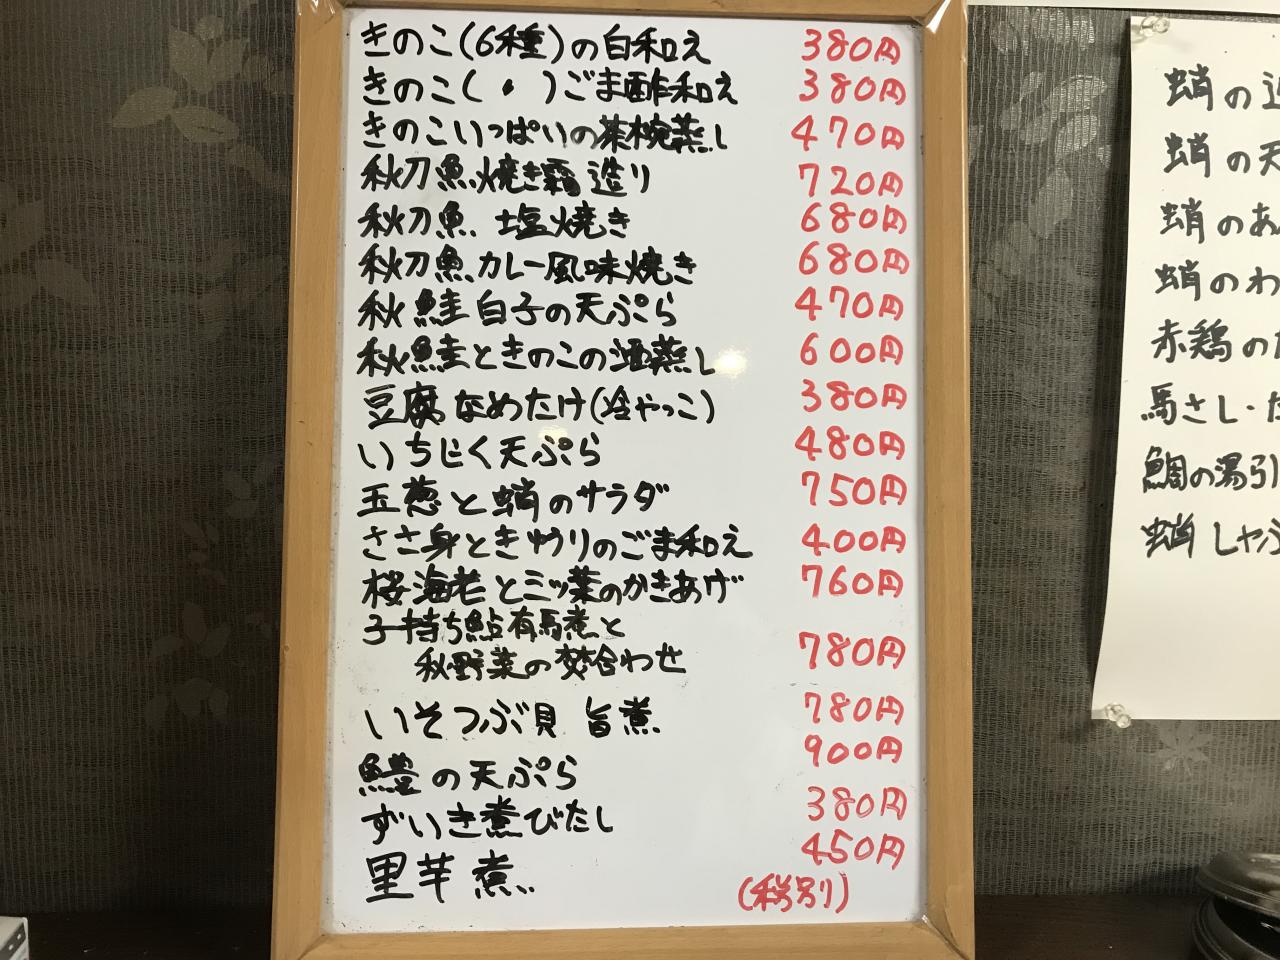 きのこ(6種)の白和え 380円
きのこ( 〃 )ごま酢和え 380円
きのこいっぱいの茶椀蒸し 470円
秋刀魚焼き霜造り 720円
秋刀魚 塩焼き 680円
秋刀魚カレー風味焼き 680円
秋鮭白子の天ぷら 470円
秋鮭ときのこの酒蒸し 600円
豆腐なめたけ(冷やっこ) 380円
いちじく天ぷら 480円
玉葱と蛸のサラダ 750円
ささ身ときゅうりのごま和え 400円
桜海老とミツ葉のかきあげ 760円
子持ち鮎有馬煮と
秋野菜の焚合わせ 780円
いそつぶ貝 旨煮 780円
鱧の天ぷら 900円
ずいき煮びたし 380円
里芋煮 450円
(税別)
蛸の
蛸の天
蛸のあ
蛸のわ
赤鶏の
馬さし・た
鯛の湯引
蛸しゃぶ